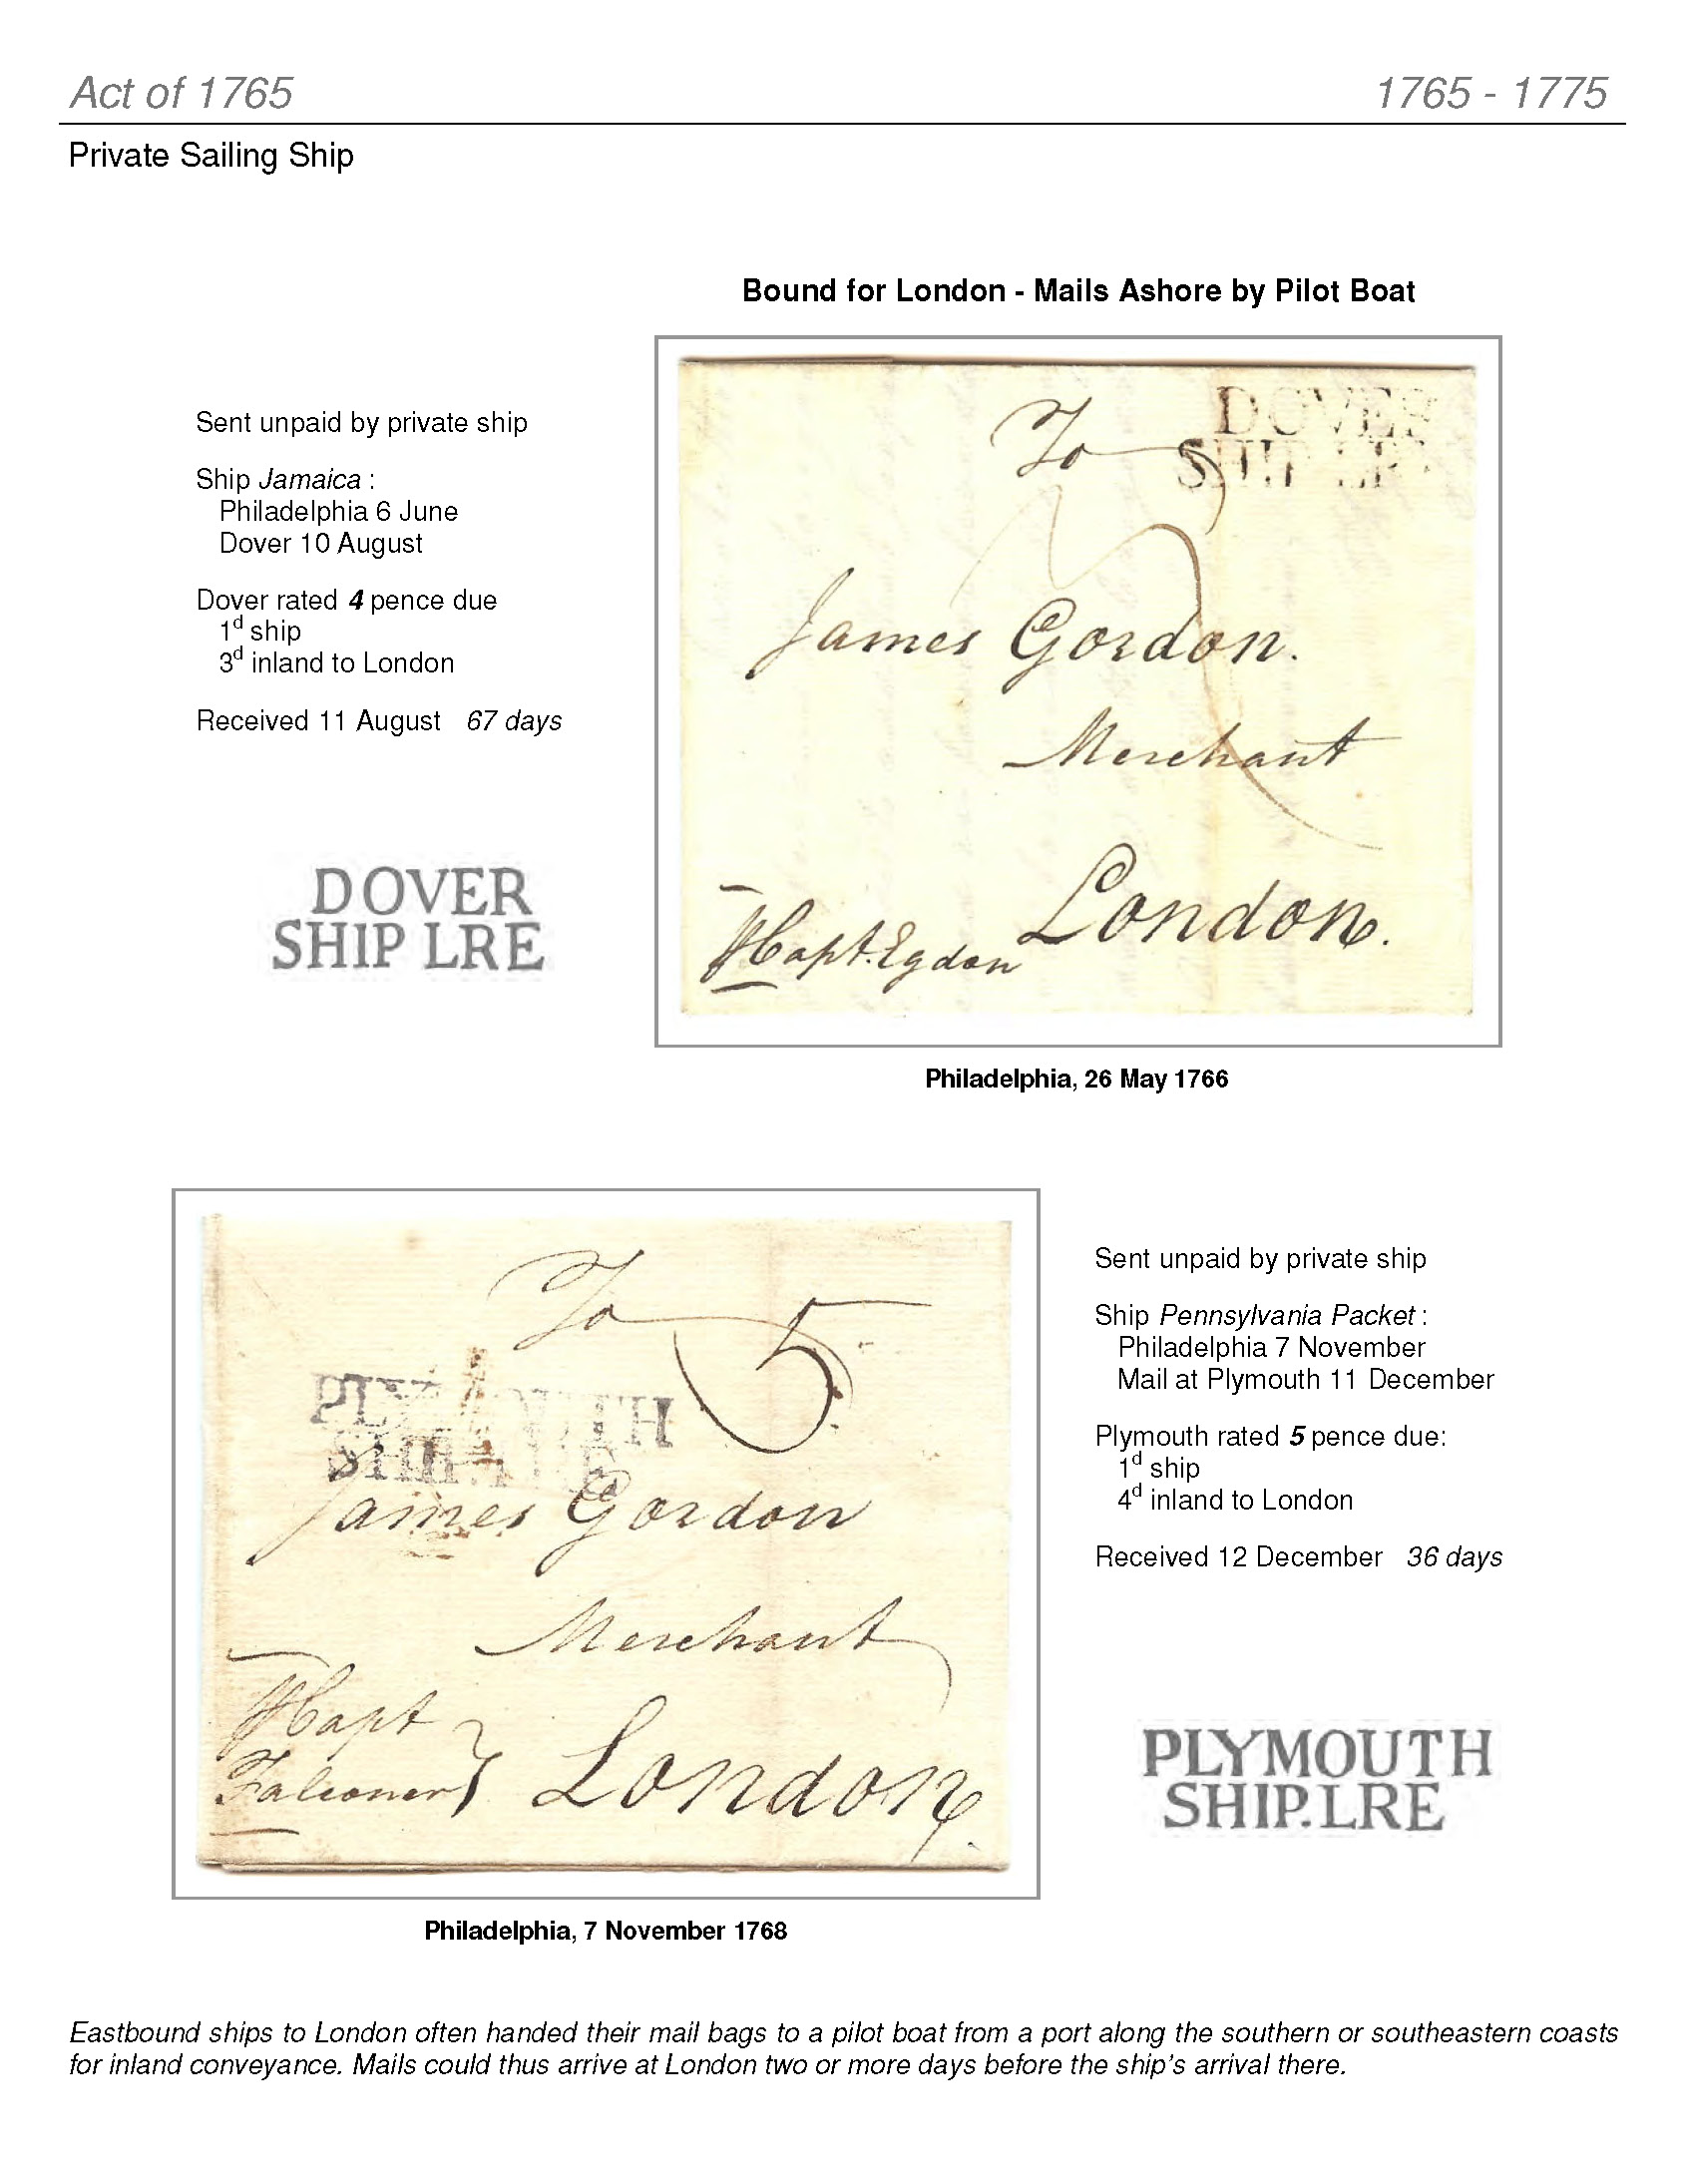 Act of 1765
1765 - 1775
Private Sailing Ship
Bound for London - Mails Ashore by Pilot Boat
Sent unpaid by private ship
Ship Jamaica :
Philadelphia 6 June
Dover 10 August
Dover rated 4 pence due
1d ship
3d inland to London
Received 11 August 67 days
DOVER
SHIP LRE
DOVER
SHIP LRE
To
James Gordon.
Merchant
London.
Capt. Egdon
Philadelphia, 26 May 1766
To
5
PLYMOUTH
SHIP.LRE
James Gordon
Merchant
Capt
Falconer
London.
Philadelphia, 7 November 1768
Sent unpaid by private ship
Ship Pennsylvania Packet :
Philadelphia 7 November
Mail at Plymouth 11 December
Plymouth rated 5 pence due:
1d ship
4d inland to London
Received 12 December 36 days
PLYMOUTH
SHIP.LRE
Eastbound ships to London often handed their mail bags to a pilot boat from a port along the southern or southeastern coasts
for inland conveyance. Mails could thus arrive at London two or more days before the ship's arrival there.